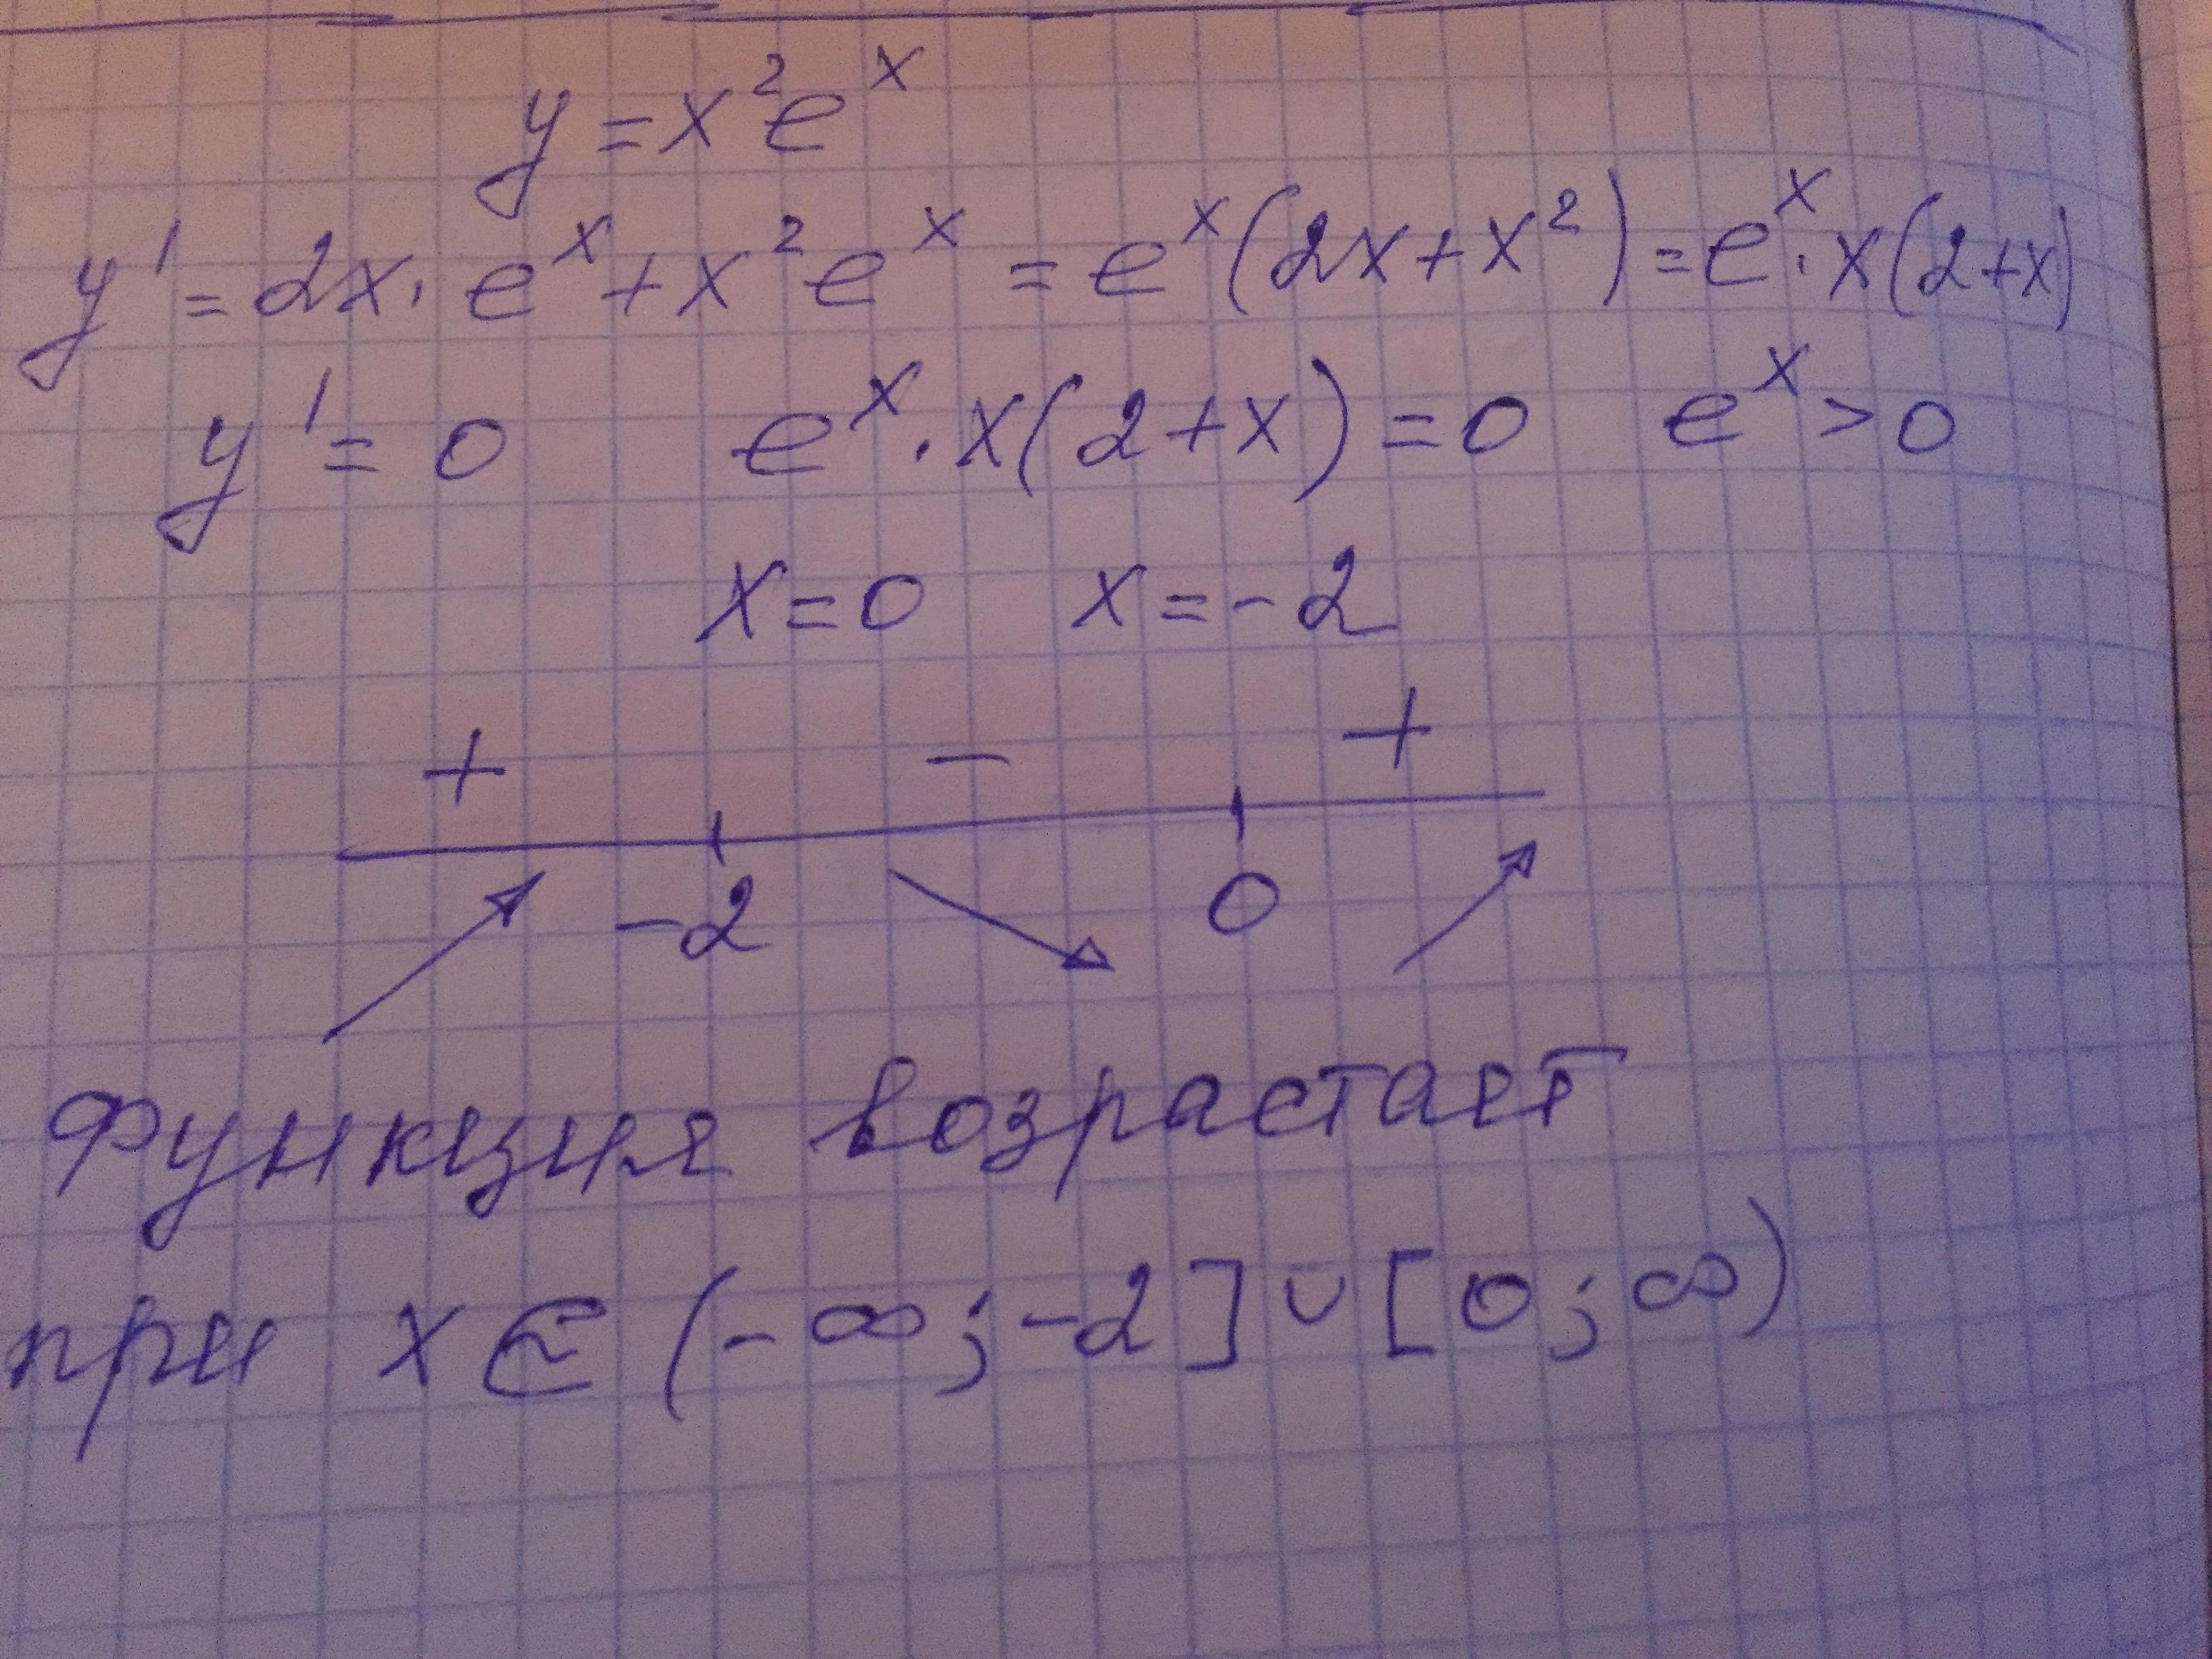 y = x²eˣ
y' = 2x · eˣ + x²eˣ = eˣ(2x + x²) = eˣ · x(2+x)
y' = 0 eˣ · x(2+x) = 0 eˣ > 0
x = 0 x = -2
+ - +
-2 0
Функция возрастает
при x ∈ (-∞; -2] ∪ [0; ∞)